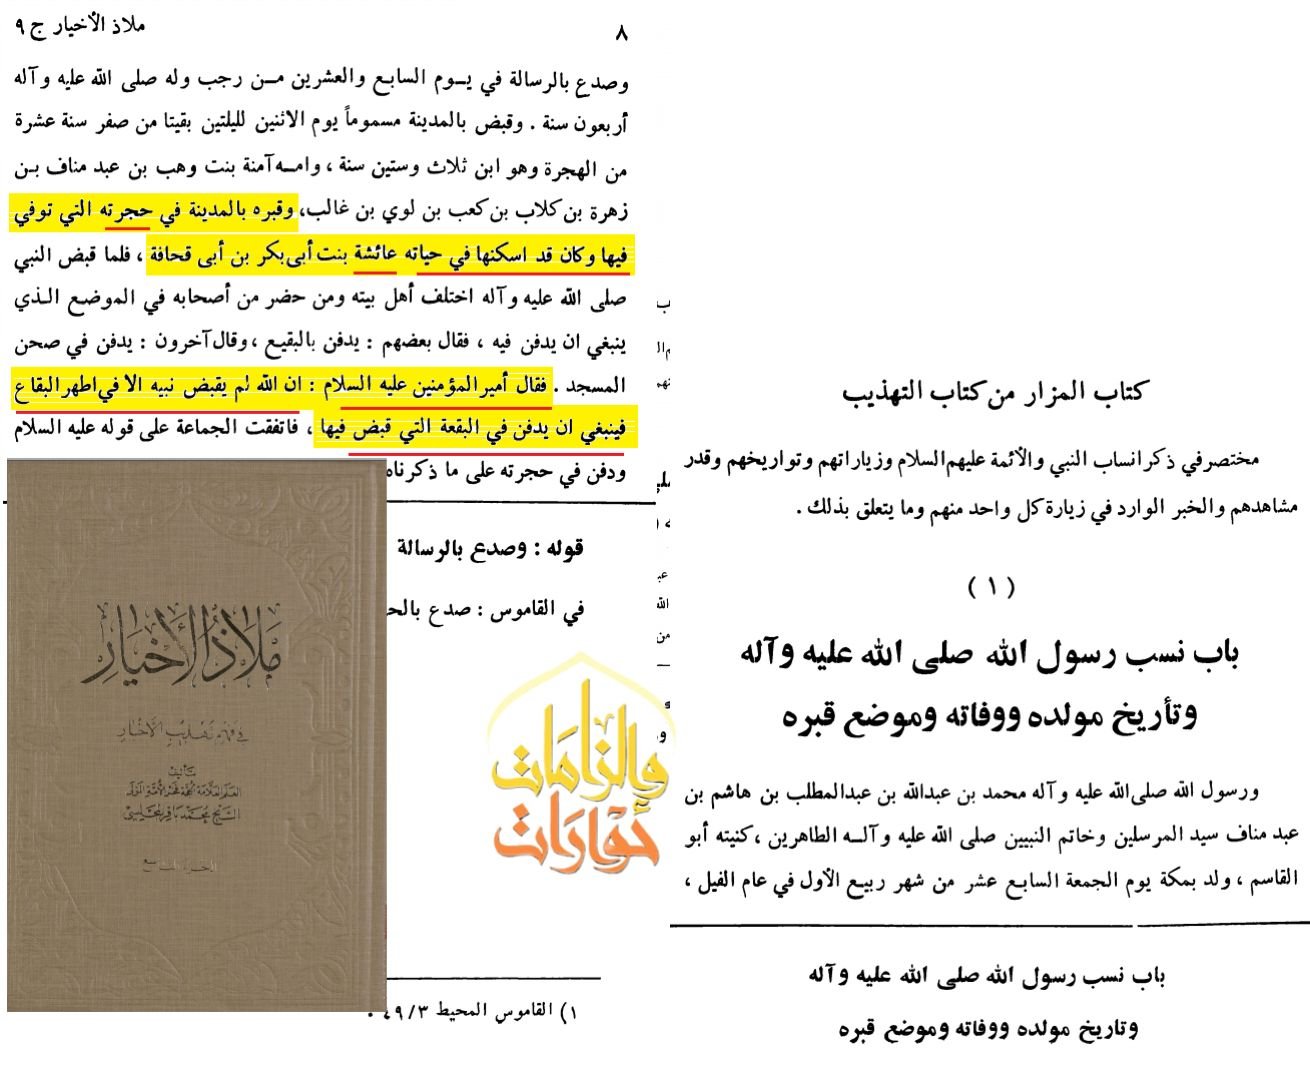 كتاب المزار من كتاب التهذيب
مختصر في ذكر انساب النبي والأئمة عليهم السلام وزياراتهم وتواريخهم وقدر
مشاهدهم والخبر الوارد في زيارة كل واحد منهم وما يتعلق بذلك .
( ١ )
باب نسب رسول الله صلى الله عليه وآله
وتأريخ مولده ووفاته وموضع قبره
ورسول الله صلى الله عليه وآله محمد بن عبدالله بن عبدالمطلب بن هاشم بن
عبد مناف سيد المرسلين وخاتم النبيين صلى الله عليه وآلـه الطاهرين ، كنيته أبو
القاسم ، ولد بمكة يوم الجمعة السابع عشر من شهر ربيع الأول في عام الفيل ،
باب نسب رسول الله صلى الله عليه وآله
وتاريخ مولده ووفاته وموضع قبره
٨
ملاذ الأخيار ج ٩
وصدع بالرسالة في يـوم السابع والعشرين مـن رجب وله صلى الله عليه وآله
أربعون سنة . وقبض بالمدينة مسموماً يوم الاثنين لليلتين بقيتا من صفر سنة عشرة
من الهجرة وهو ابن ثلاث وستين سنة ، وامـه آمنة بنت وهب بن عبد مناف بـن
زهرة بن كلاب بن كعب بن لوي بن غالب، وقبره بالمدينة في حجرته التي توفي
فيها وكان قد اسكنها في حياته عائشة بنت أبى بكر بن أبى قحافة ، فلما قبض النبي
صلى الله عليه وآله اختلف أهل بيته ومن حضر من أصحابه في الموضع الـذي
ينبغي ان يدفن فيه ، فقال بعضهم : يدفن بالبقيع ، وقال آخرون : يدفن في صحن
المسجد . فقال أمير المؤمنين عليه السلام : ان الله لم يقبض نبيه الا في اطهر البقاع
فينبغي ان يدفن في البقعة التي قبض فيها ، فاتفقت الجماعة على قوله عليه السلام
ودفن في حجرته على ما ذكرناه
قوله : وصدع بالرسالة
في القاموس : صدع بالحـ
١) القاموس المحيط ٤٩/٣ .
ملاذ الأخيار
في فهم تهذيب الأخبار
تأليف
العلم العلامة الحجة فخر الأمة المولى
الشيخ محمد باقر المجلسي
الجزء التاسع
والزامات
حوارات